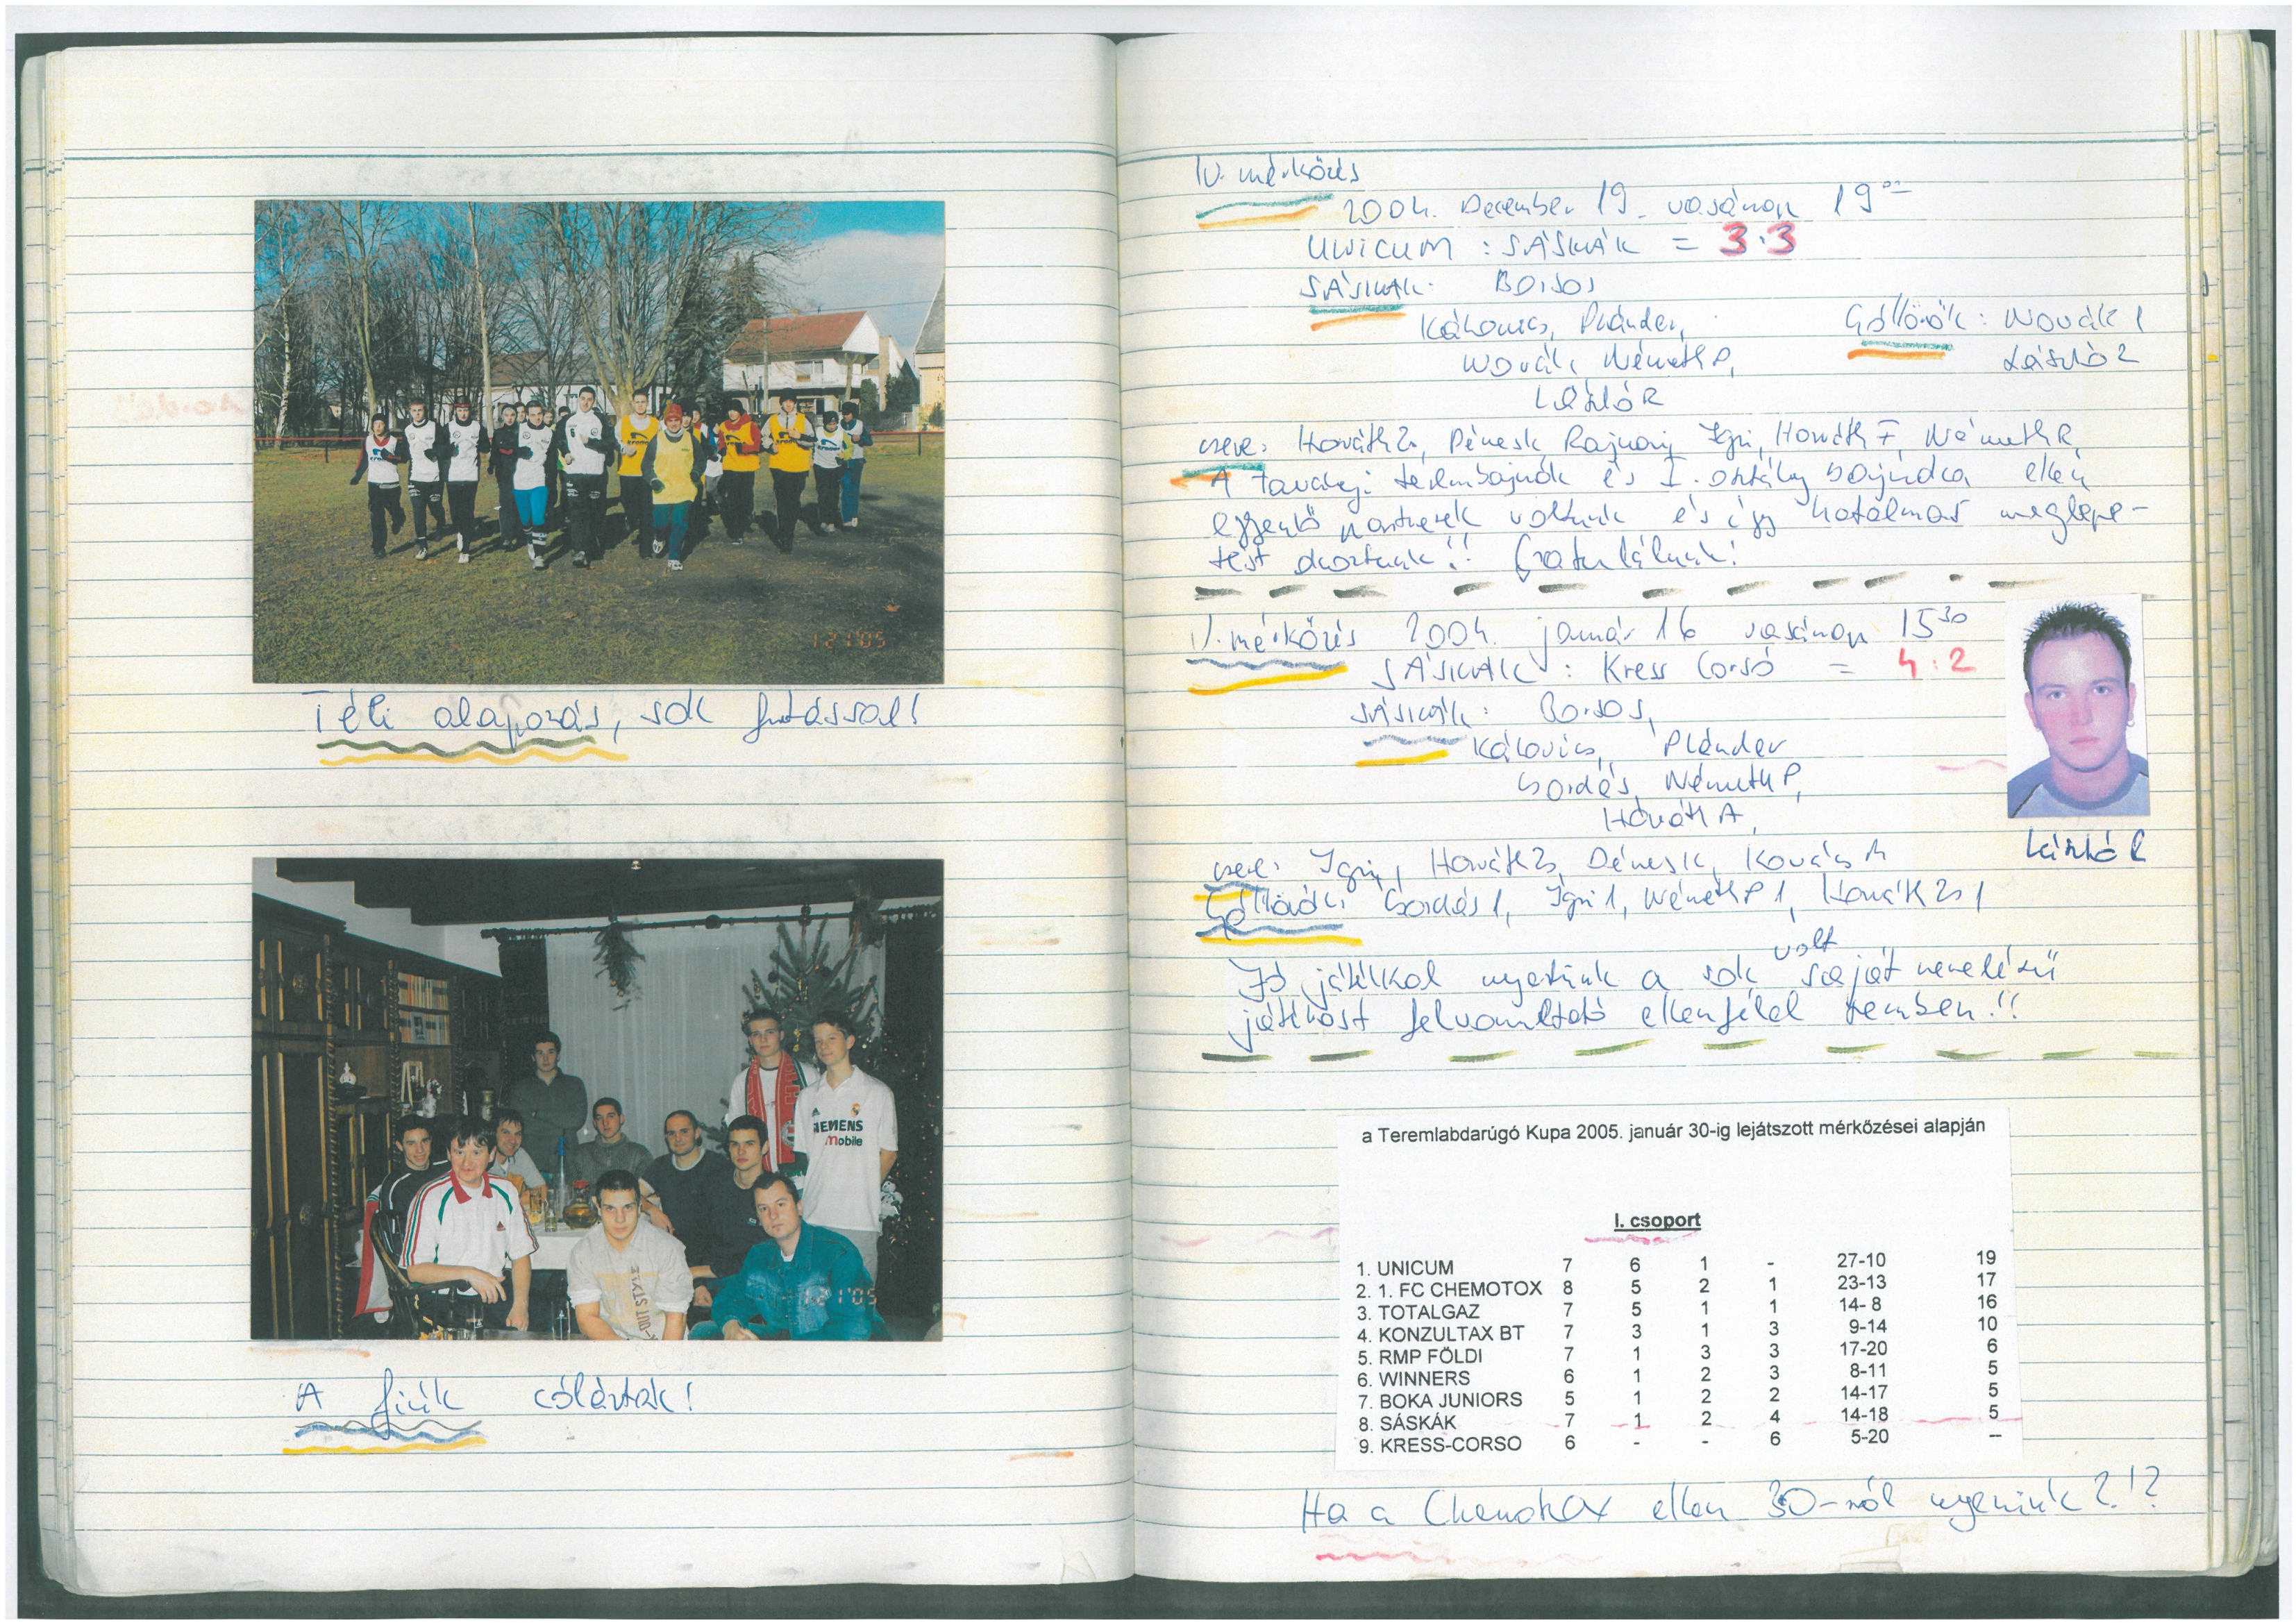 12 1'05
Téli alapozás, sok futással!
SIEMENS
mobile
12 1'05
A fiúk cólóztak!
IV. mérkőzés
2004. December 19. vasárnap 19⁰⁰
UNICUM : SÁSKÁK = 3:3
SÁSKÁK: Borsos
Kálovics, Plánder, Góllövők: Novák 1
Novák, Németh P, László 2
László R
csere: Horváth Zs, Dénes K, Rajnai, Igri, Horváth F, Németh R,
A tavalyi terembajnok és I. osztály bajnoka ellen
egyenlő partnerek voltunk és így hatalmas meglepe-
tést okoztunk!! Gratulálunk!
V. mérkőzés 2004. január 16 vasárnap 15³⁰
SÁSKÁK : Kress Corsó = 4:2
SÁSKÁK: Borsos,
Kálovics, Plánder
Sordás, Németh P,
Horváth A,
László R
csere: Igri, Horváth Zs, Dénes K, Kovács M
Góllövők: Sordás 1, Igri 1, Németh P 1, Horváth Zs 1
Jó játékkal nyertünk a sok volt saját nevelésű
játékost felvonultató ellenféllel szemben!!
a Teremlabdarúgó Kupa 2005. január 30-ig lejátszott mérkőzései alapján
I. csoport
1. UNICUM 7 6 1 - 27-10 19
2. 1. FC CHEMOTOX 8 5 2 1 23-13 17
3. TOTALGAZ 7 5 1 1 14- 8 16
4. KONZULTAX BT 7 3 1 3 9-14 10
5. RMP FÖLDI 7 1 3 3 17-20 6
6. WINNERS 6 1 2 3 8-11 5
7. BOKA JUNIORS 5 1 2 2 14-17 5
8. SÁSKÁK 7 1 2 4 14-18 5
9. KRESS-CORSO 6 - - 6 5-20 --
Ha a Chemotox ellen 30-ról nyerünk?!?